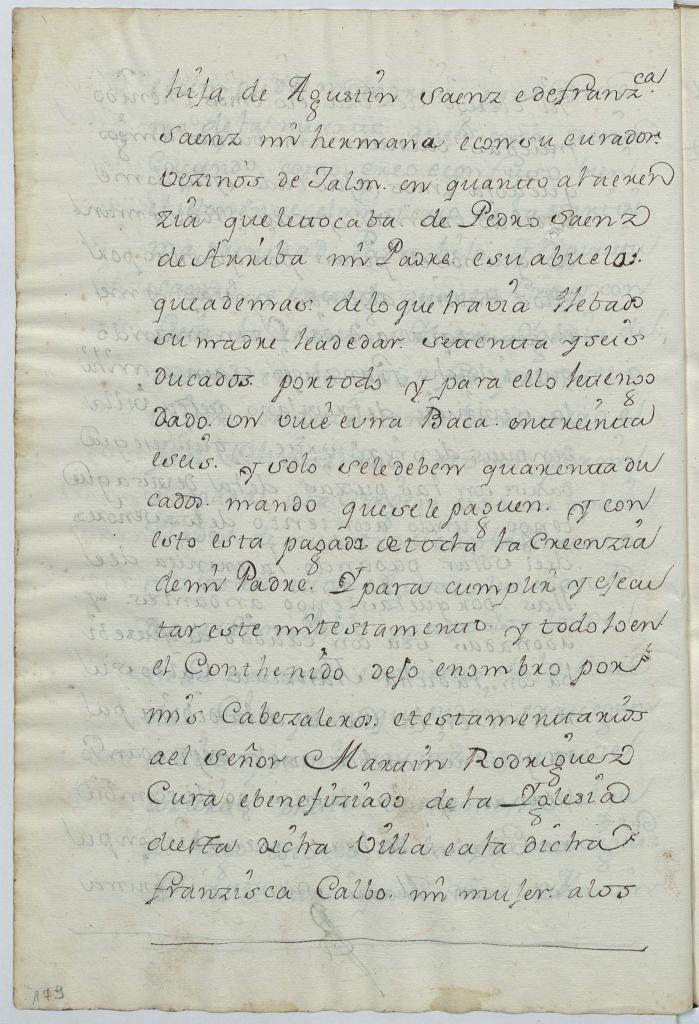 hija de Agustin Saenz e de franz.ca
Saenz mi hermana, e con su curador.
vezinos de Jalon. en quantto a la eren
zia que le ttocaba. de Pedro Saenz
de Arriba mi Padre. e su abuelo.
que ademas. de lo que havia llebado
su madre le a de dar. settentta y seis
ducados. por todo y para ello le ttengo
dado. un e una Baca. en ttreintta
e seis. y solo se le deben quarentta du
cados. mando que se le paguen. y con
esto esta pagada de toda la Creenzia
de mi Padre. Y para cumplir y ejecu
tar este mi testamentto. y todo lo en
el Conthenido dejo e nombro por
mis Cabezaleros. e testamenttarios
a el Señor Marttin Rodriguez
Cura e benefiziado de la Yglesia
de esta dicha Villa e a la dicha
franzisca Calbo. mi mujer. a los
179